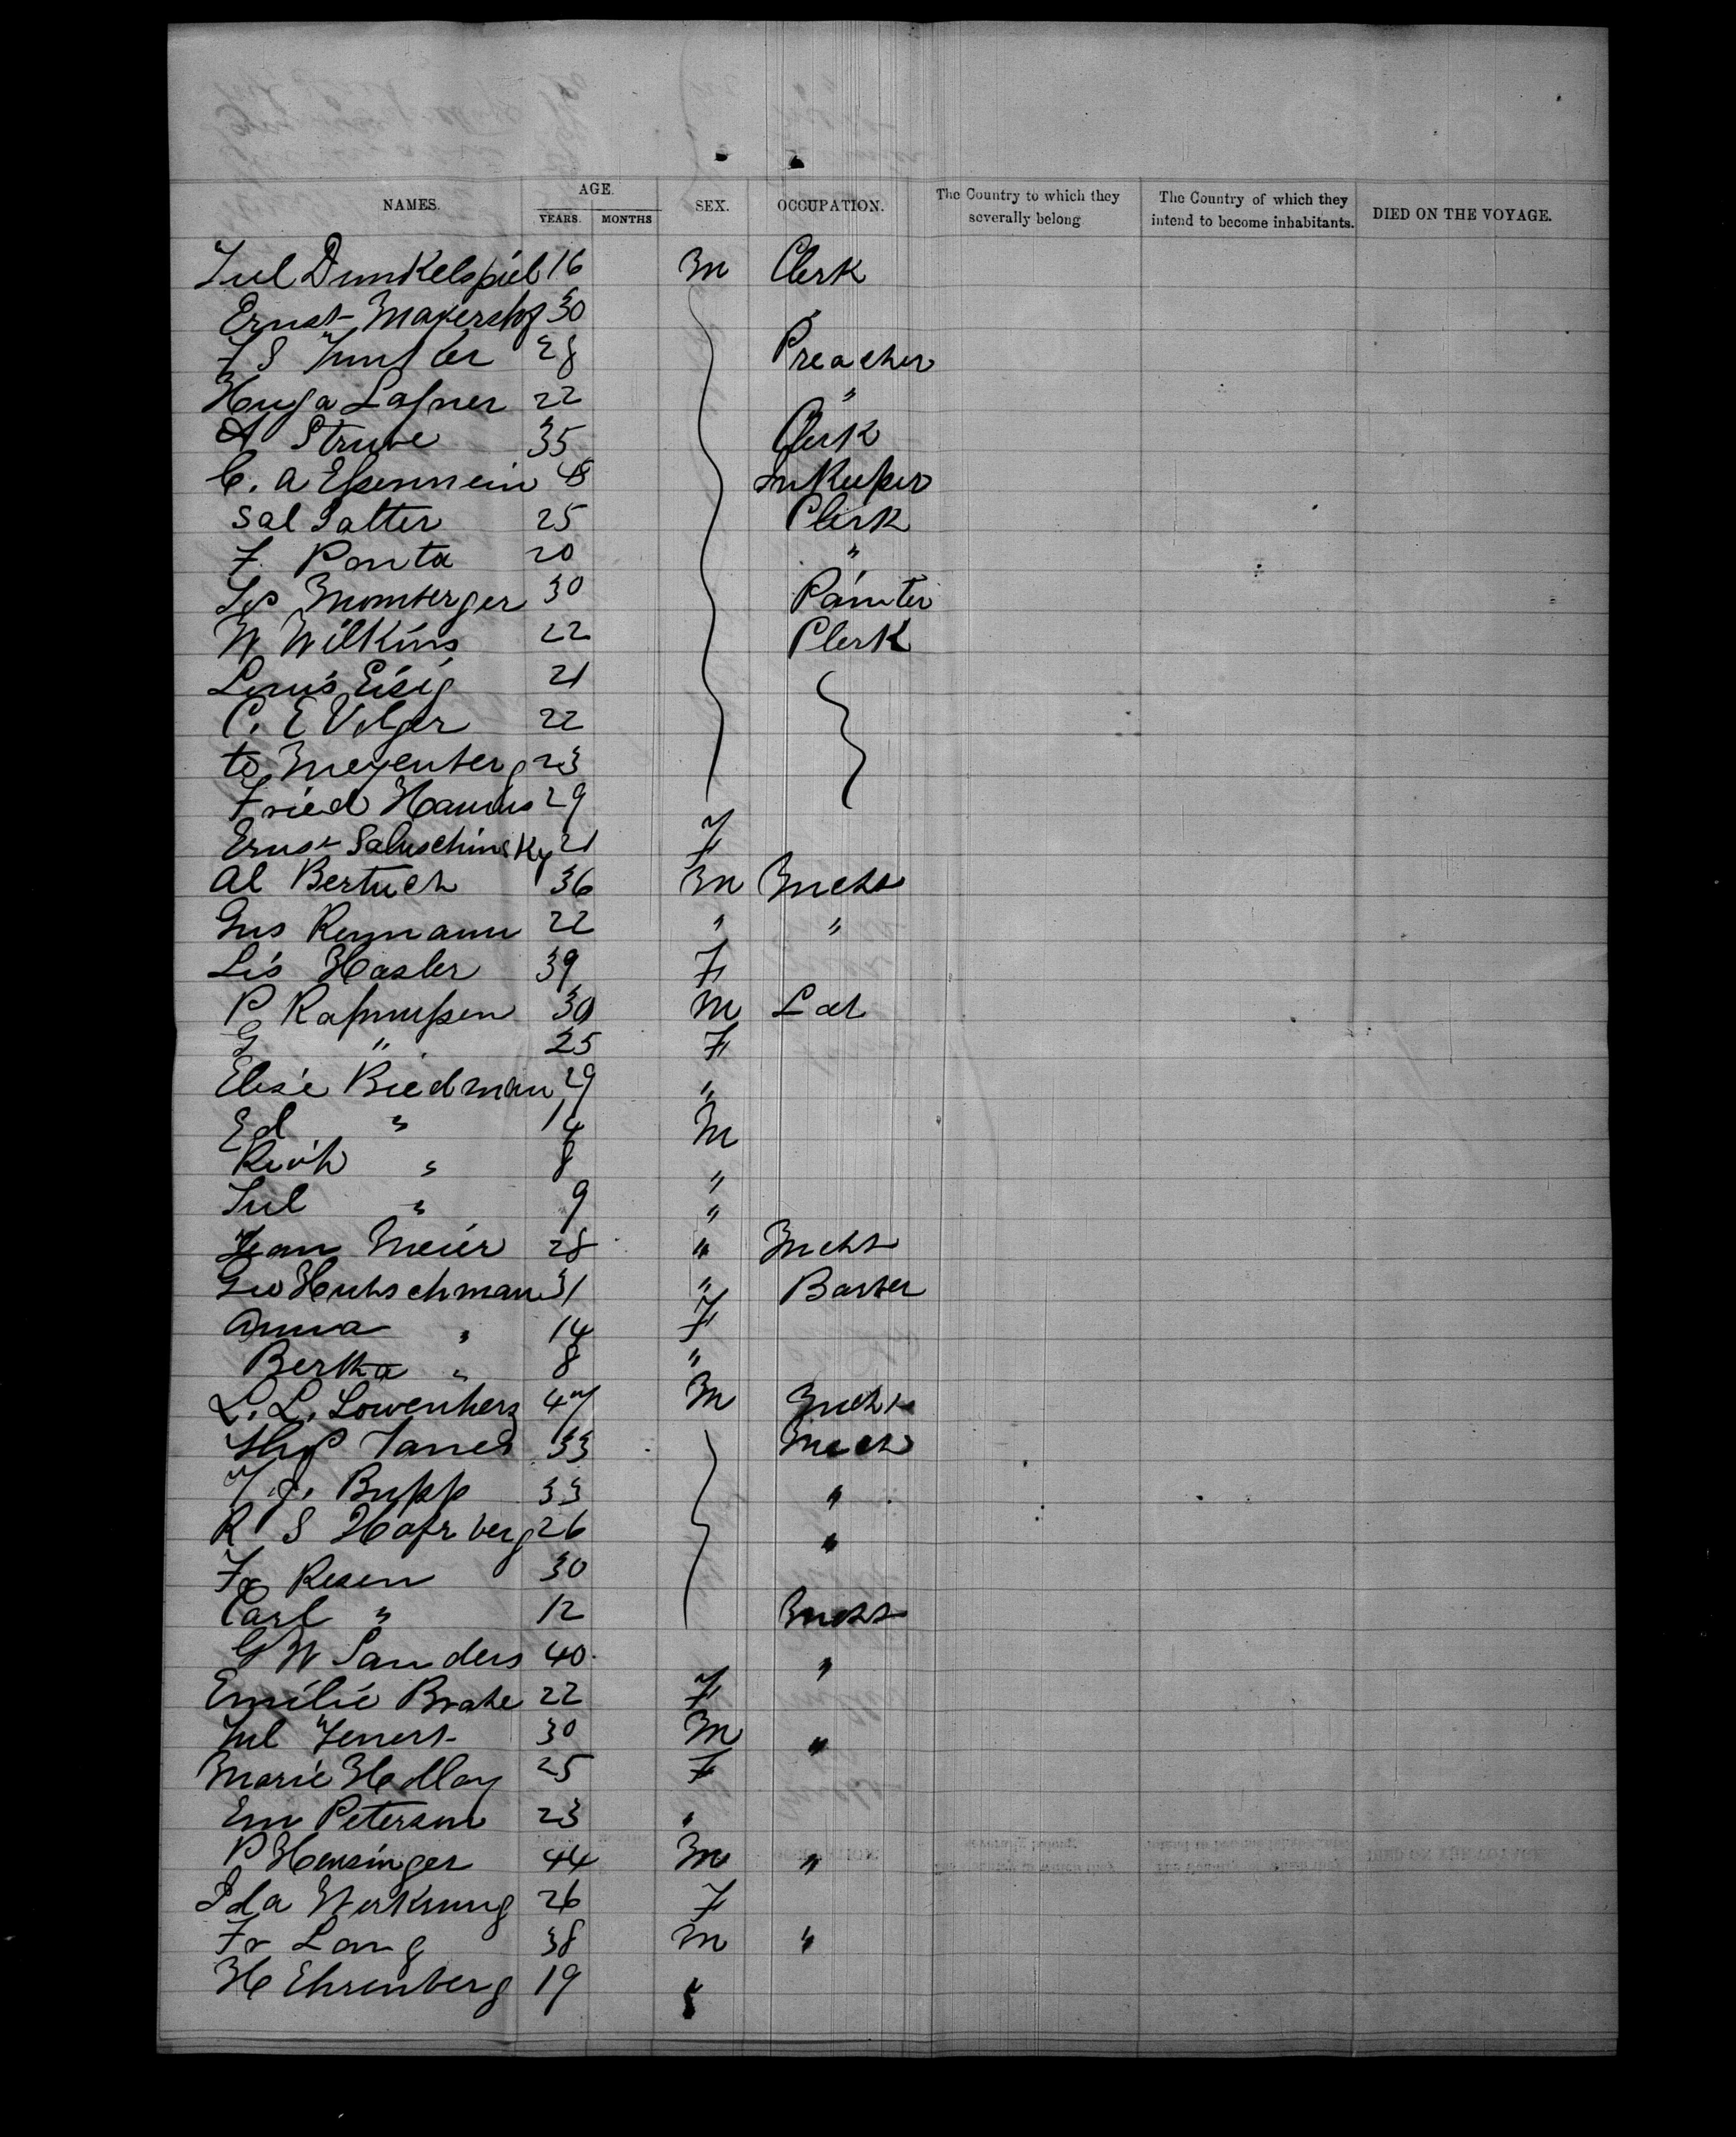 NAMES. AGE. YEARS. MONTHS SEX. OCCUPATION. The Country to which they severally belong The Country of which they intend to become inhabitants. DIED ON THE VOYAGE.
Jul Dunkelspiel 16 M Clerk
Ernst Mayershof 30 "
J S Junker 28 Preacher
Hugo Lassner 22 "
A Struve 35 Clerk
C. A Essennein 48 InKeeper
Sal Salter 25 Clerk
F. Ponta 20 "
Momberger 30 Painter
W Wilkins 22 Clerk
Louis Eisig 21
C. E Vilger 22
to Meyenberg 23
Fried 29
Ernst Saluschinsky 21 F
Al Bertuch 36 M Mcht
Gus Reymann 22 " "
Lis Hasler 39 F
P Rassmussen 30 M Lab
G " 25 F
Elise Biedman 29 "
Ed " 14 M
" 8 "
Jul " 9 "
Jean Meier 28 " Mcht
Geo Hutschman 31 " Barber
Anna " 14 F
Bertha " 8 "
L. L. Lowenherz 47 M Mcht
33 Mech
J. Bupp 33 "
R S 26 "
Fr Resen 30
Carl " 12 Mcht
G W Sanders 40 "
Emilie Brahe 22 F
Jul 30 M "
Marie 25 F
Em Peterson 23 "
P Hensinger 44 M "
Ida 26 F
Fr Lang 38 M "
H Ehrenberg 19 "